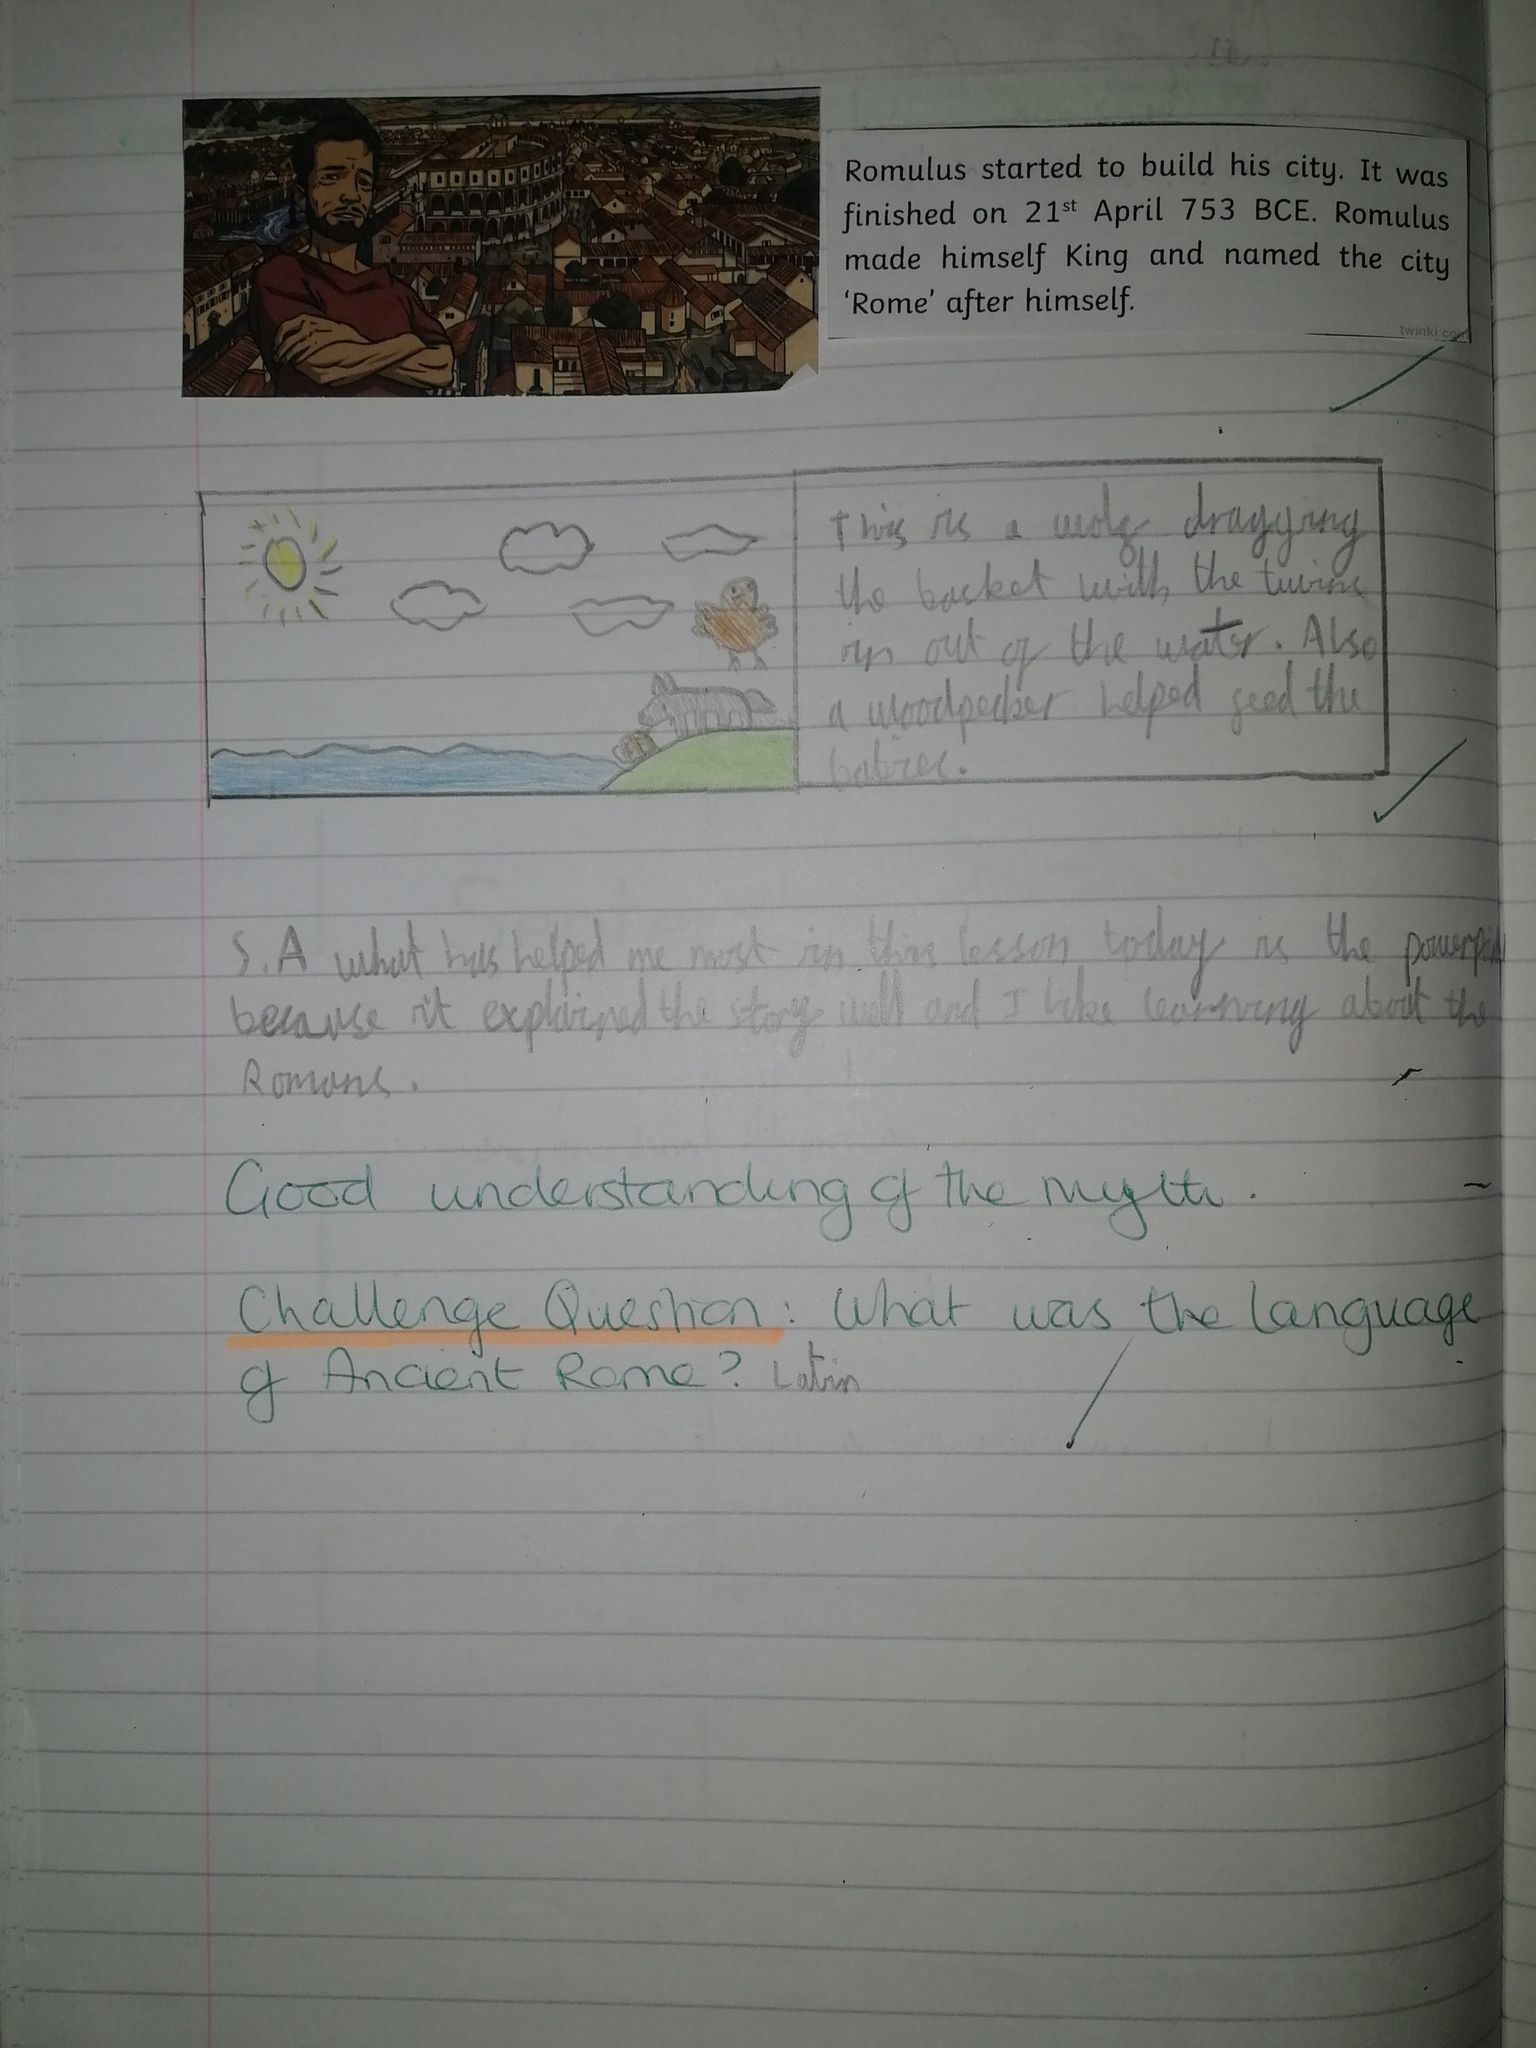 Romulus started to build his city. It was
finished on 21st April 753 BCE. Romulus
made himself King and named the city
'Rome' after himself.
twinkl.com
This is a wolf dragging
the basket with the twins
in out of the water. Also
a woodpecker helped feed the
babies.
S.A what has helped me most in this lesson today is the
because it explained the story well and I like learning about the
Romans.
Good understanding of the myth.
Challenge Question: What was the language
of Ancient Rome? Latin